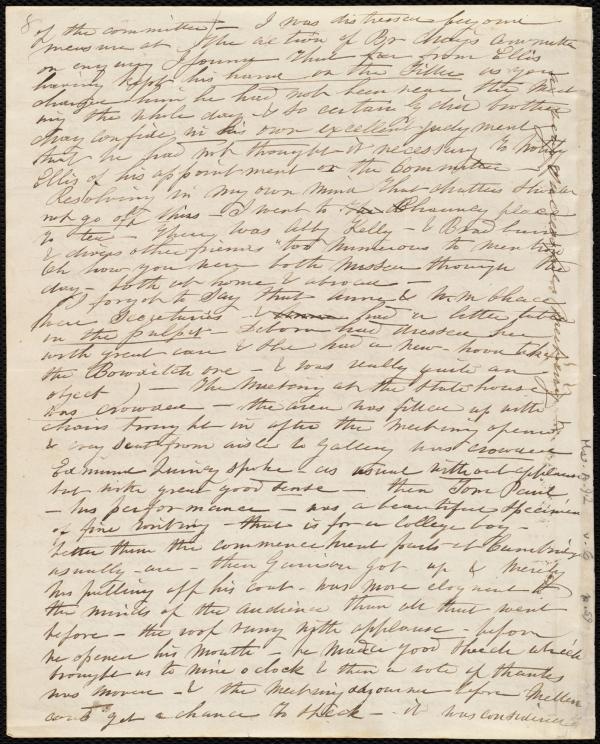 8
of the committee) - I was distressed beyond
measure at the action of Br Chace's committee
on enquiry I found that far from Ellis
having kept his name on the Title as you
charge him he had not been near the meet
ing the whole day - & so certain & did brother
Chace confide in his own excellent judgment
that he had not thought it necessary to notify
Ellis of his appointment on the Committee -
Resolving in my own mind that
not go off thus - I went to Chauncy place
to tea - There was Abby Kelly - & Bradburn
& divers other friends "too numerous to mention
Oh how you were both missed through the
day - both at home & abroad -
(I forgot to say that Anne & W. M. Chace
were Secretaries & had a little table
in the pulpit - Deborah had dressed her
with great care & she had a new
the Bowditch one - & was really quite an
object) - The Meeting at the State house
was crowded - the area was filled up with
chairs brought in after the meeting opened
& every seat from aisle to gallery was crowded
Edmund Quincy spoke - as usual without applause
but with great good sense - then Tom Paul
- his performance - was a beautiful specimen
of fine writing - that is for a College boy -
better than the commencement parts at Cambridge
usually - are - then Garrison got up & merely
his pulling off his coat - was more eloquent to
the minds of the audience than all that went
before - the roof rung with applause - before
he opened his mouth - he made a good speech which
brought us to nine o'clock & then a vote of thanks
was moved - & the meeting adjourned before Mellen
could get a chance to speak - it was considered
Ms. A.9.2
v. 6
p. 59